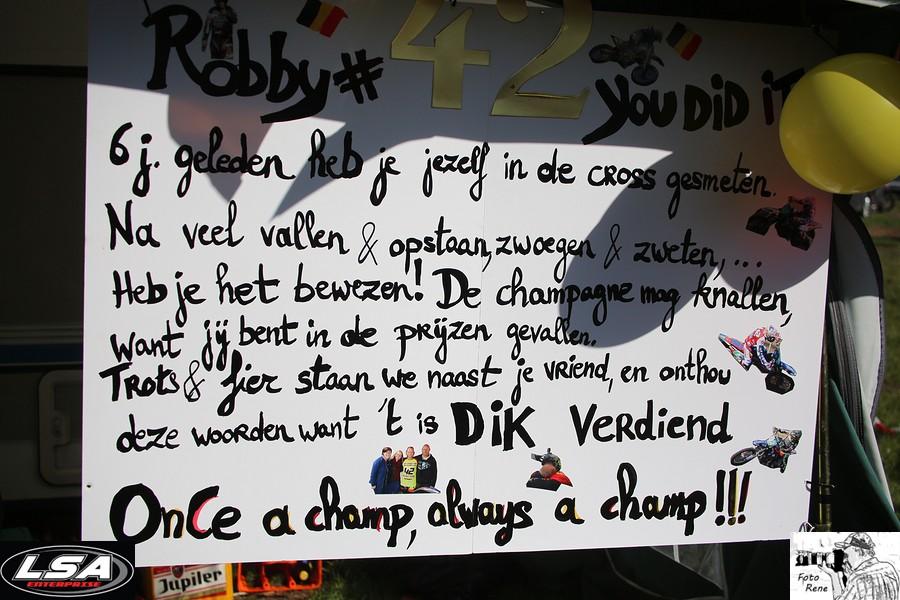 Robby # 42 YOU DiD iT
6 j. geleden heb je jezelf in de cross gesmeten.
Na veel vallen & opstaan, zwoegen & zweten, ...
Heb je het bewezen! De champagne mag knallen,
Want jij bent in de prijzen gevallen.
Trots & fier staan we naast je vriend, en onthou
deze woorden want 't is DiK Verdiend
Once a champ, always a champ!!!
LSA
ENTERPRISE
Jupiler
Foto
Rene